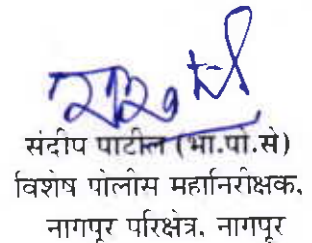 संदीप पाटील (भा.पो.से)
विशेष पोलीस महानिरीक्षक,
नागपूर परिक्षेत्र, नागपूर